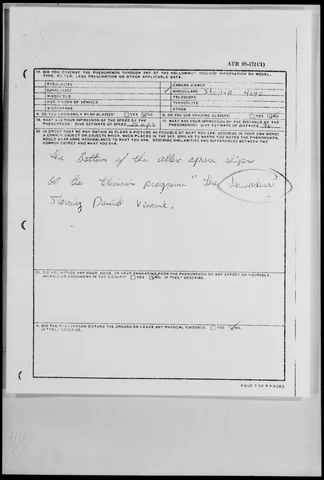 AFR 80-17(C1)
17. DID YOU OBSERVE THE PHENOMENON THROUGH ANY OF THE FOLLOWING? INCLUDE INFORMATION ON MODEL, TYPE, FILTER, LENS PRESCRIPTION OR OTHER APPLICABLE DATA.
EYEGLASSES
CAMERA VIEWER
SUNGLASSES
BINOCULARS
WINDSHIELD
TELESCOPE
SIDE WINDOW OF VEHICLE
THEODOLITE
WINDOWPANE
OTHER
DO YOU ORDINARILY WEAR GLASSES? YES NO
DO YOU USE READING GLASSES? YES NO
WHAT WAS YOUR IMPRESSION OF THE SPEED OF THE PHENOMENON? GIVE ESTIMATE OF SPEED
WHAT WAS YOUR IMPRESSION OF THE DISTANCE OF THE PHENOMENON? GIVE ESTIMATE OF DISTANCE
20. IN ORDER THAT WE MAY OBTAIN AS CLEAR A PICTURE AS POSSIBLE OF WHAT YOU SAW, DESCRIBE IN YOUR OWN WORDS A COMMON OBJECT OR OBJECTS WHICH, WHEN PLACED IN THE SKY, WOULD BEAR SOME RESEMBLANCE TO WHAT YOU SAW. DESCRIBE SIMILARITIES AND DIFFERENCES BETWEEN THE COMMON OBJECT AND WHAT YOU SAW.
the bottom of the space ships
the television programe "the Invaders"
Starring David Vincent.
21. DID YOU NOTICE ANY ODOR, NOISE, OR HEAT EMANATING FROM THE PHENOMENON OR ANY EFFECT ON YOURSELF, ANIMALS OR MACHINERY IN THE VICINITY? YES NO IF "YES," DESCRIBE.
DID THE PHENOMENON DISTURB THE GROUND OR LEAVE ANY PHYSICAL EVIDENCE? YES NO.
IF "YES," DESCRIBE.
PAGE OF 5 PAGES